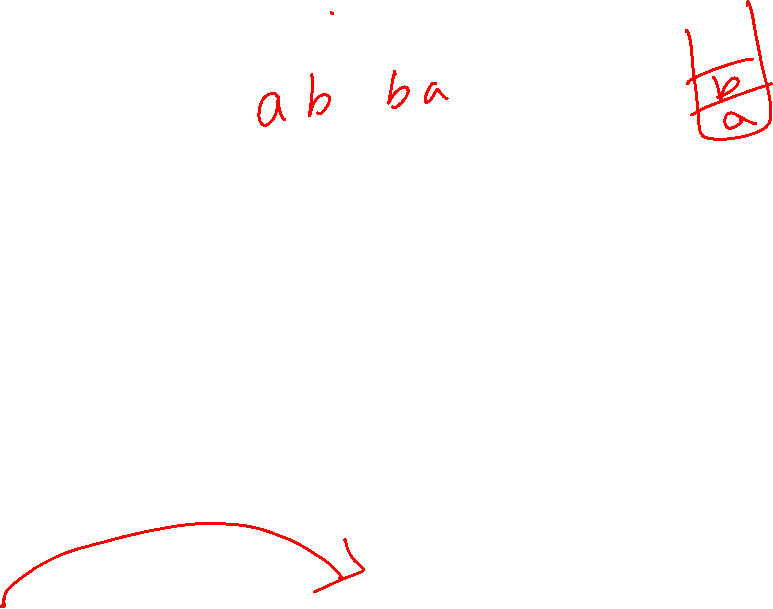 ab ba
b
a